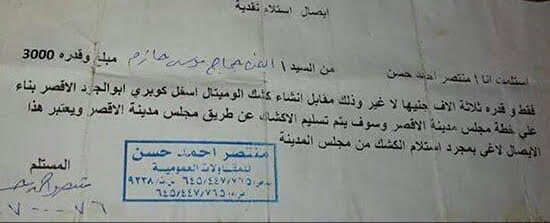 ايصال استلام نقدية
استلمت انا / منتصر احمد حسن من السيد / مبلغ وقدره 3000
فقط و قدره ثلاثة الاف جنيها لا غير وذلك مقابل انشاء كشك الوميتال اسفل كوبري ابوالجود الاقصر بناء
علي خطة مجلس مدينة الاقصر وسوف يتم تسليم الاكشاك عن طريق مجلس مدينة الاقصر ويعتبر هذا
الايصال لاغي بمجرد استلام الكشك من مجلس المدينة
منتصر احمد حسن
للمقاولات العمومية
٦٤٥/٤٤٧/٧٦٥
٦٤٥/٤٤٧/٧٦٥
المستلم